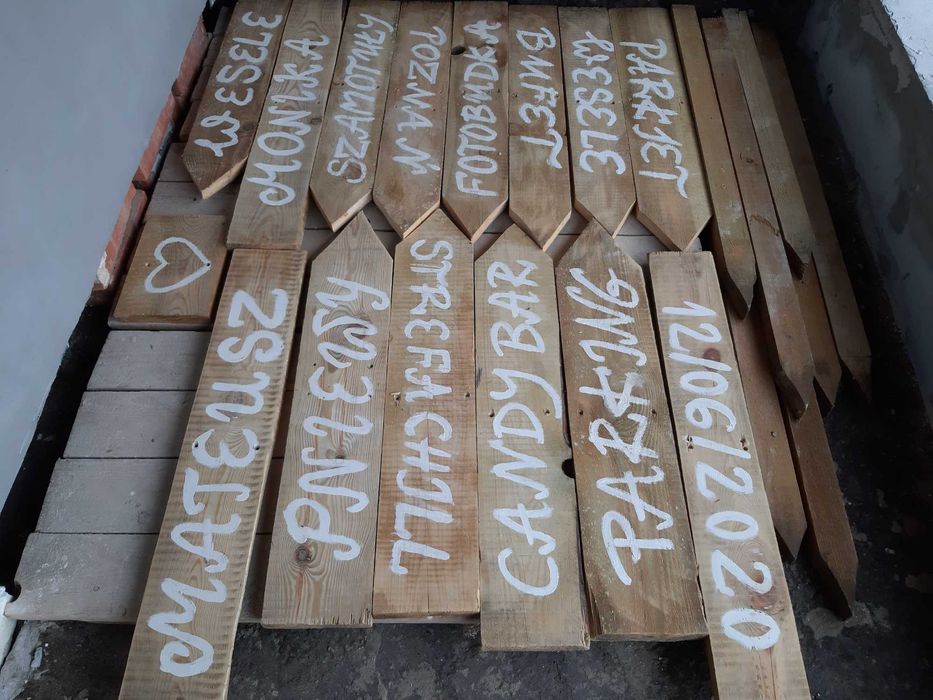 WESELE
MONIKA
SZAMOTUŁY
FOTOBUDKA
BUFET
WESELE
PARKIET
MATEUSZ
PNIEWY
STREFA CHILL
CANDY BAR
PARKING
12/06/2020